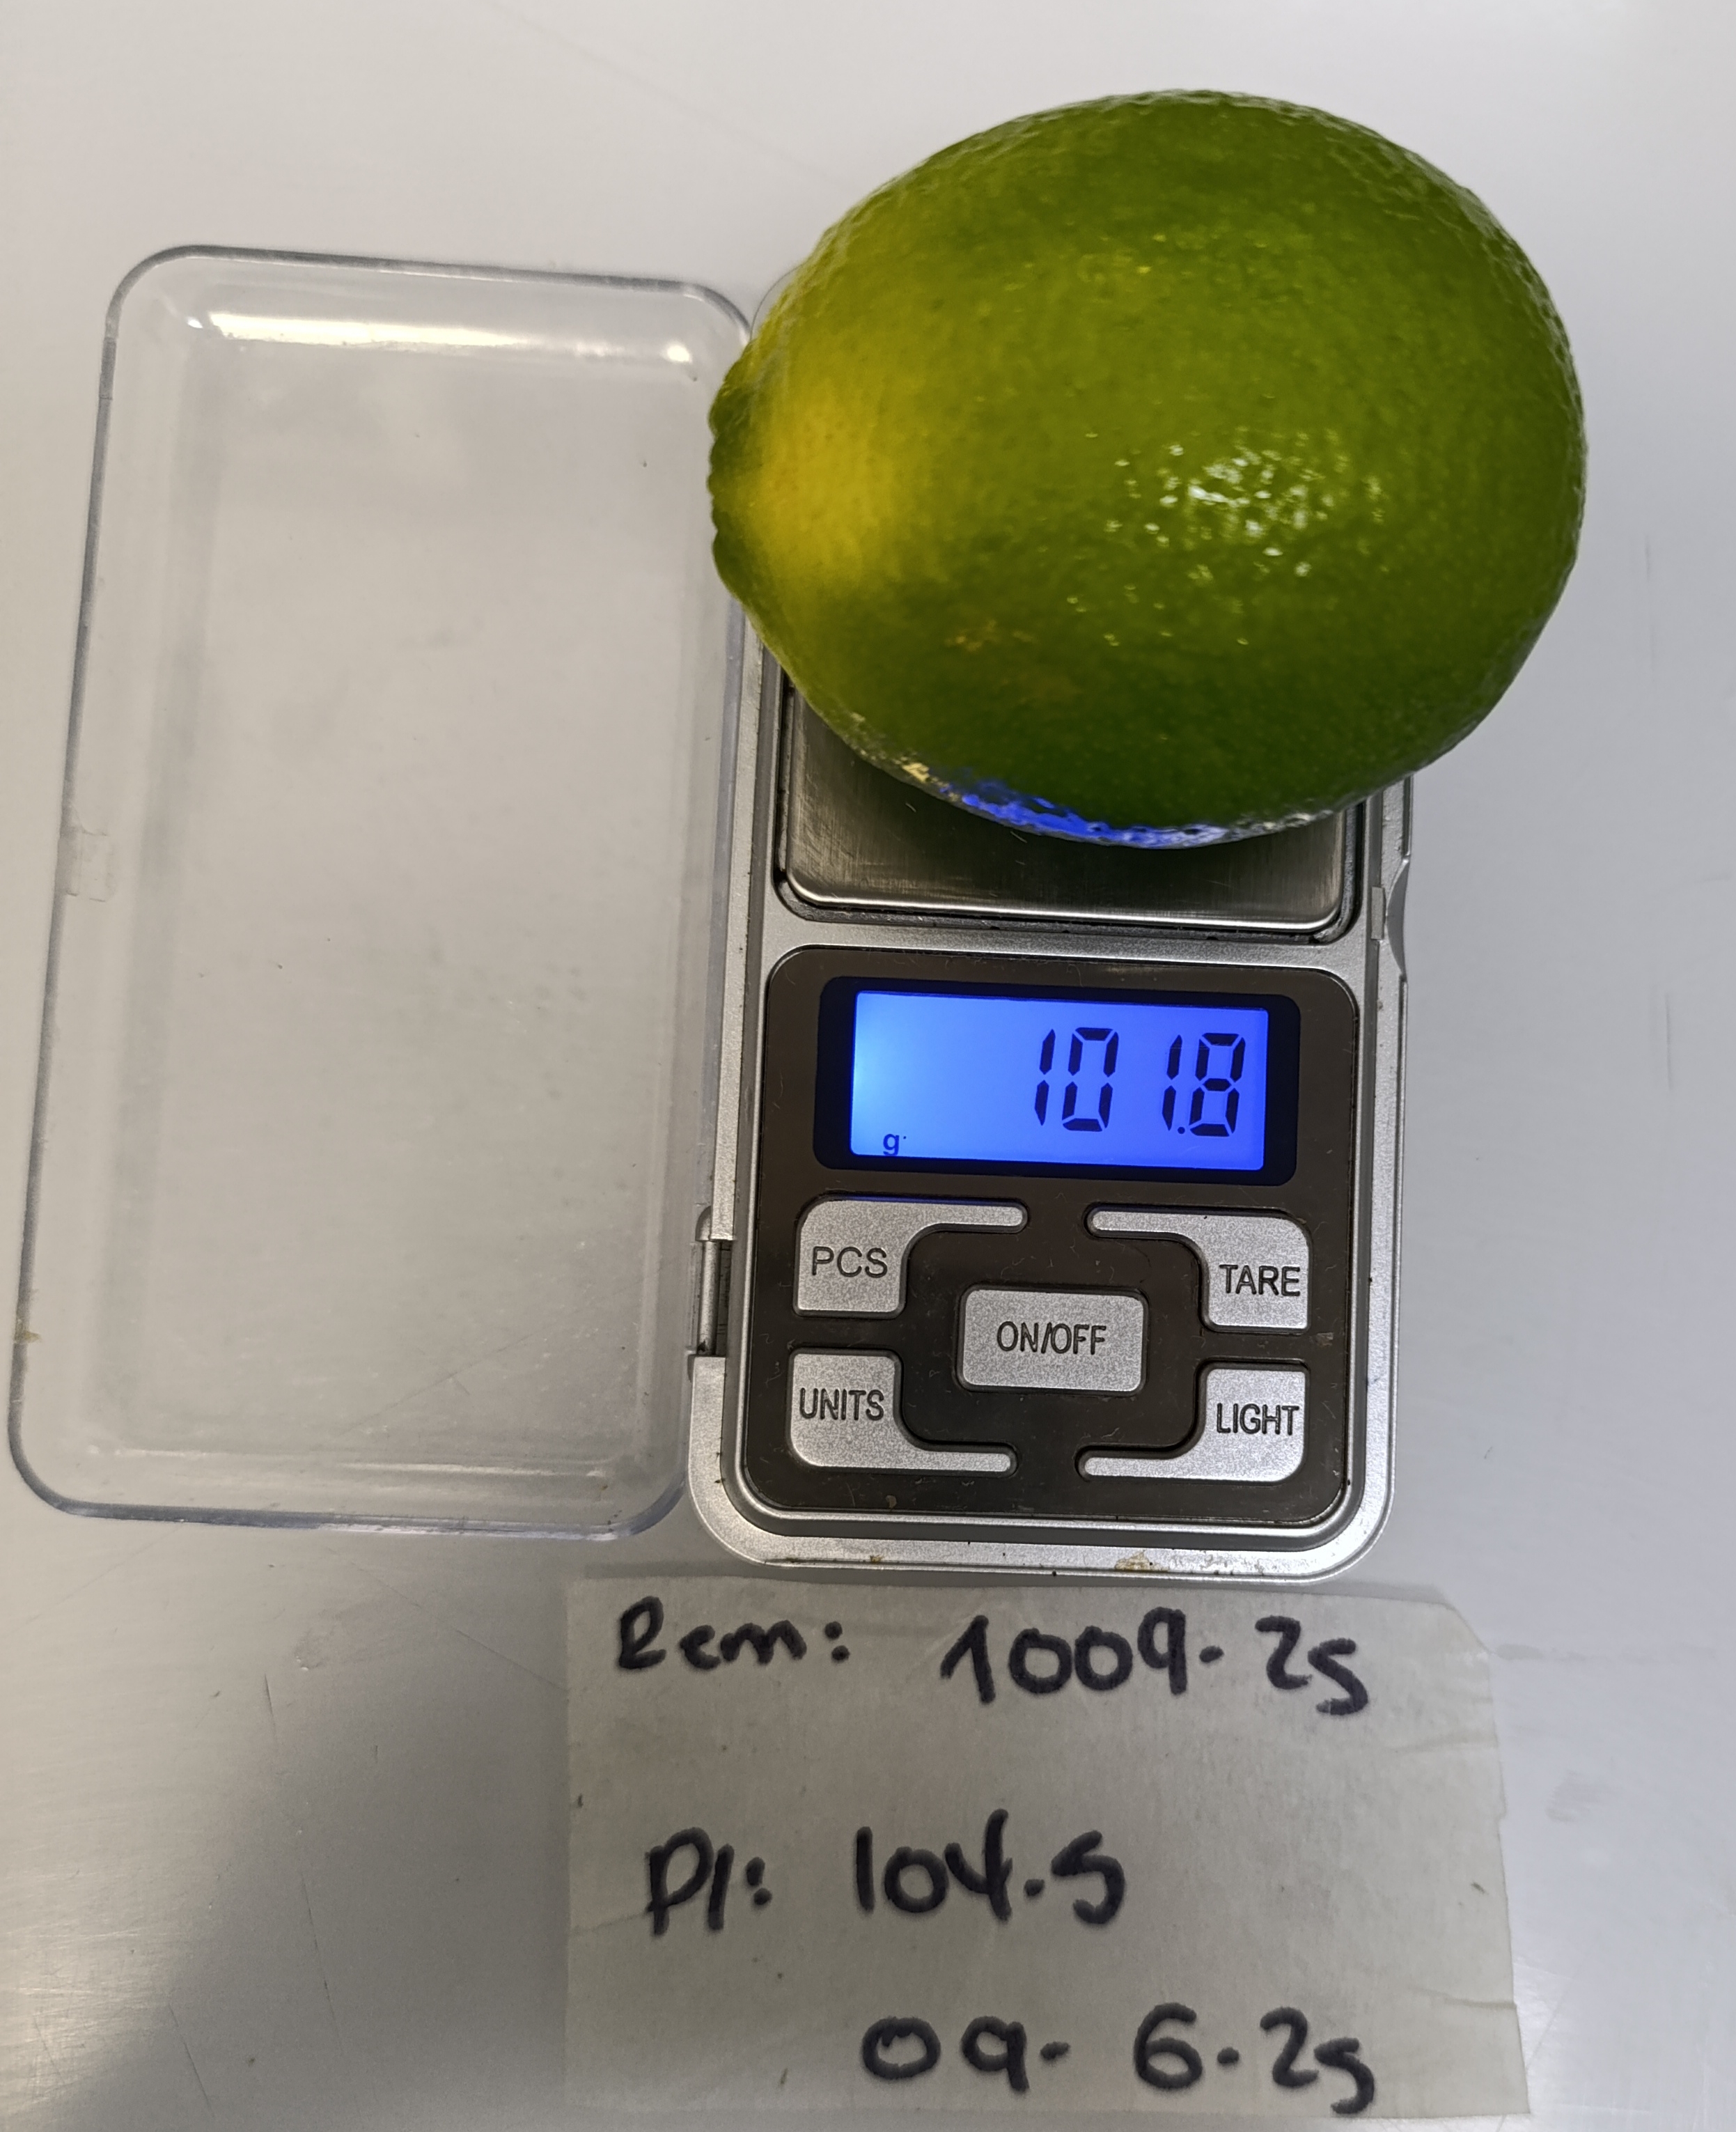 101.8
g
PCS
TARE
ON/OFF
UNITS
LIGHT
Rem: 1009-25
PI: 104.5
09-6-25